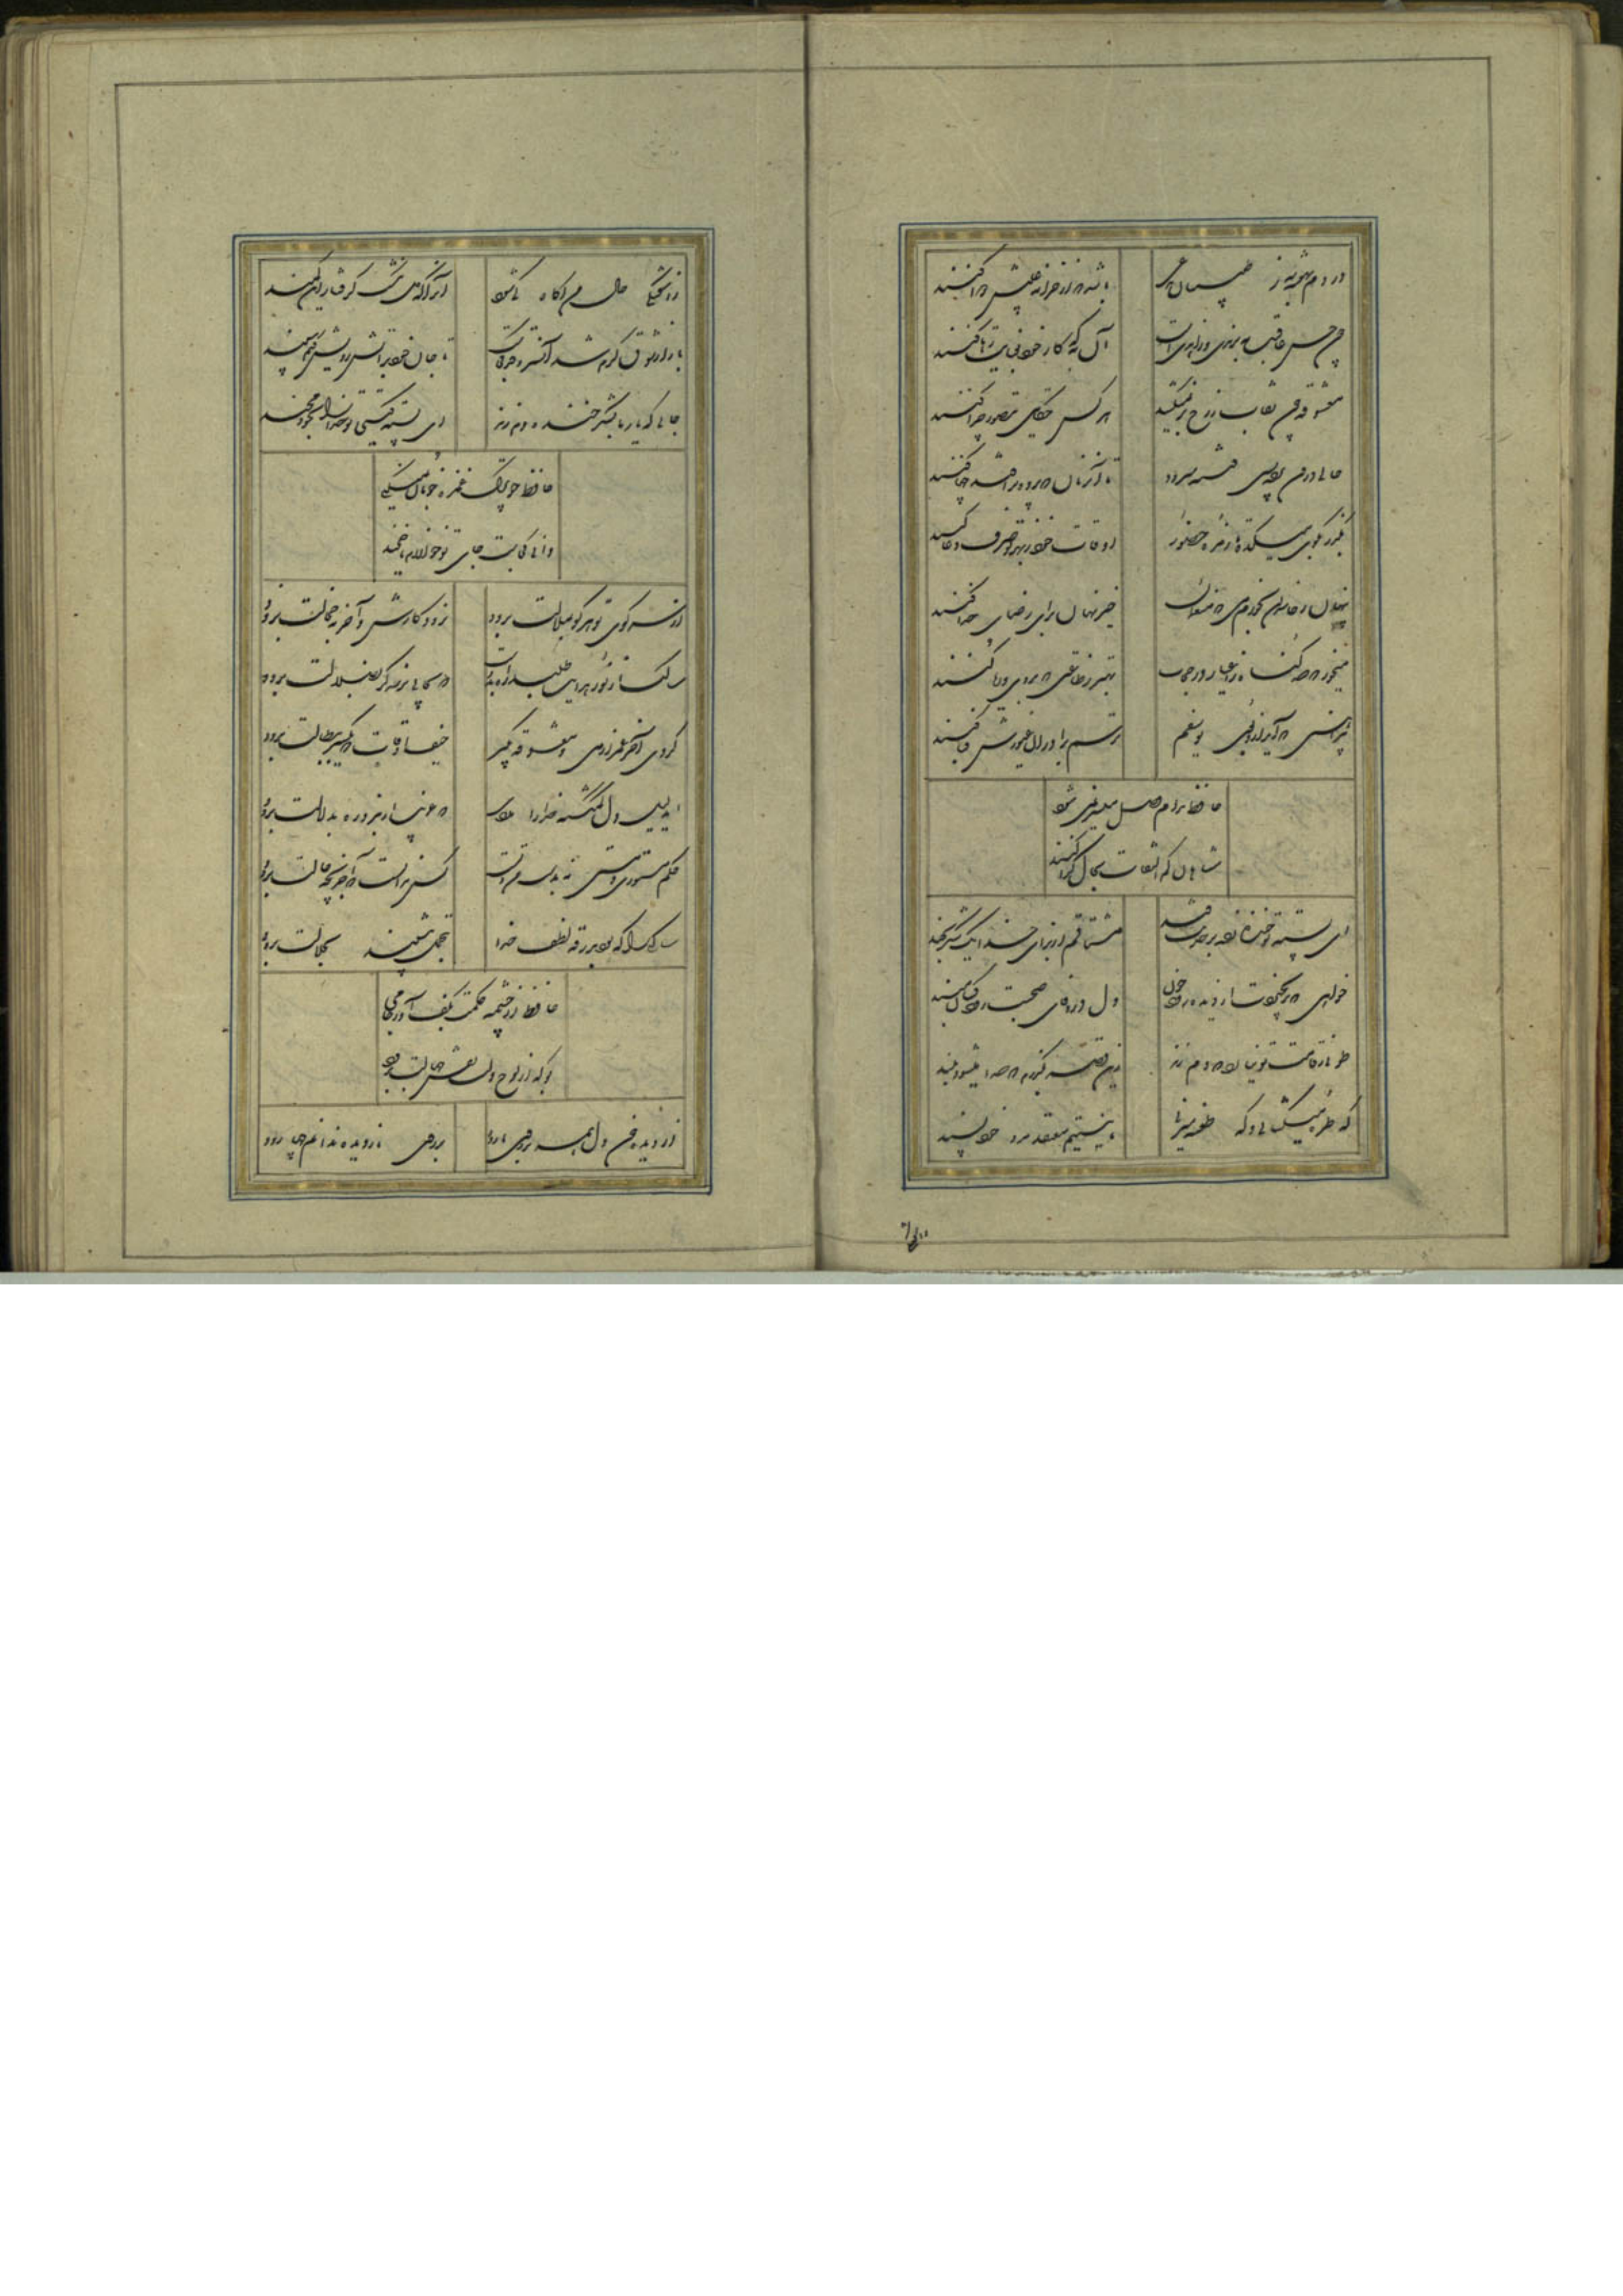 دردم نهفته به ز طبیبان مدعی
باشد که از خزانه غیبش دوا کنند
چون حسن عاقبت نه برندی و زاهدیست
آن به که کار خود بعنایت رها کنند
معشوقه چون نقاب ز رخ بر نمیکشد
هر کس حکایتی بتصور چرا کنند
حالی درون پرده بسی فتنه میرود
تا آن زمان که پرده برافتد چها کنند
بگذر بکوی میکده تا زمره حضور
اوقات خود ز بهر تو صرف دعا کنند
پنهان ز حاسدان بخودم خوان که منعمان
خیر نهان برای رضای خدا کنند
می خور که صد گناه ز اغیار در حجاب
بهتر ز طاعتی که بروی و ریا کنند
پیراهنی که آید ازو بوی یوسفم
ترسم برادران غیورش قبا کنند
حافظ دوام وصل میسر نمی شود
شاهان کم التفات بحال گدا کنند
ای پسته تو خنده زده بر حدیث قند
مشتاقم از برای خدا یک شکر بخند
خواهی که برنخیزدت از دیده رود خون
دل در وفای صحبت رود کسان مبند
طوبی ز قامت تو نیارد که دم زند
زین قصه بگذرم که سخن میشود بلند
که طعنه میزنی
ما نیستیم معتقد مرد خودپسند
ز آشفتگی حال من آگاه کی شود
آنرا که دل نگشت گرفتار این کمند
بازار شوق گرم شد آن سروقد کجاست
تا جان خود بر آتش رویش کنم سپند
جایی که یار ما بشکرخنده دم زند
ای پسته کیستی تو خدا را بخود مخند
حافظ چو ترک غمزه خوبان نمیکنی
دانی کجاست جای تو خوارزم یا خجند
از سر کوی تو هر کو بملالت برود
نرود کارش و آخر بخجالت برود
سالک از نور هدایت طلبد راه بدوست
که بجایی نرسد گر بضلالت برود
گروی آخر عمر از می و معشوقه بگیر
حیف اوقات که یکسر ببطالت برود
ای دلیل دل گمگشته خدا را مددی
که غریب ار نبرد ره بدلالت برود
حکم مستوری و مستی
کس ندانست که آخر بچه حالت برود
کاروانی که بود بدرقه لطف خدا
بتجمل بنشیند بجلالت برود
حافظ از چشمه حکمت بکف آور جامی
بو که از لوح دلت نقش جهالت برود
از دیده خون دل همه بر روی ما رود
بر روی ما ز دیده ندانم چها رود